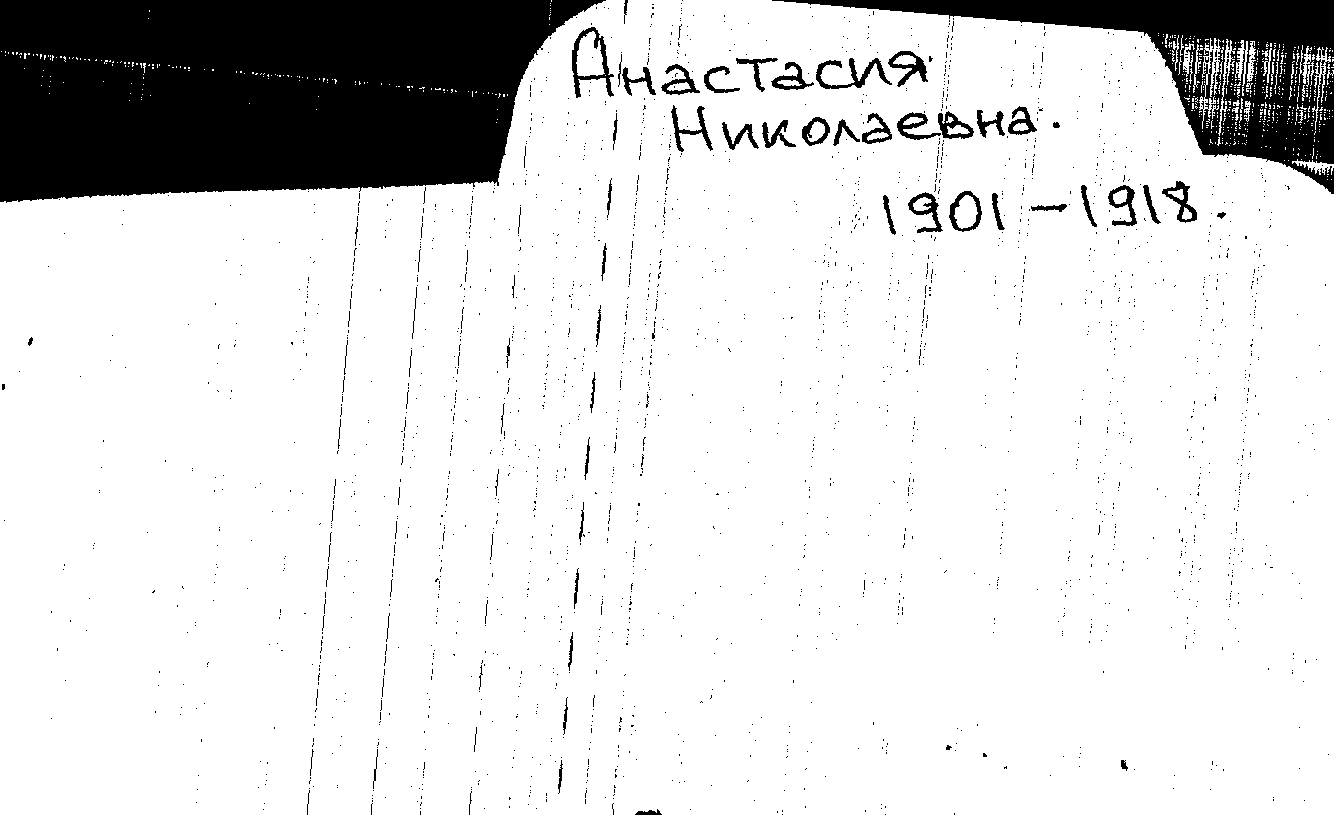 Анастасия
Николаевна.
1901 – 1918.